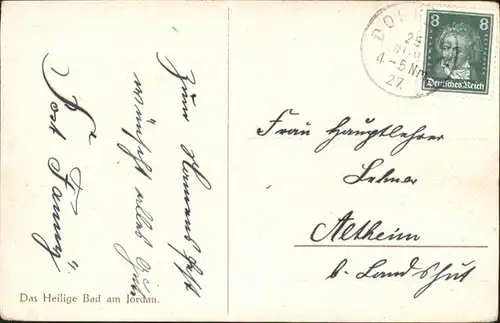 Zum Namensfest
wünscht alles Gute
Post Fanny
Das Heilige Bad am Jordan.
8 8
Deutsches Reich
4-5 Nm
27.
Frau Hauptlehrer
Altheim
b. Landshut